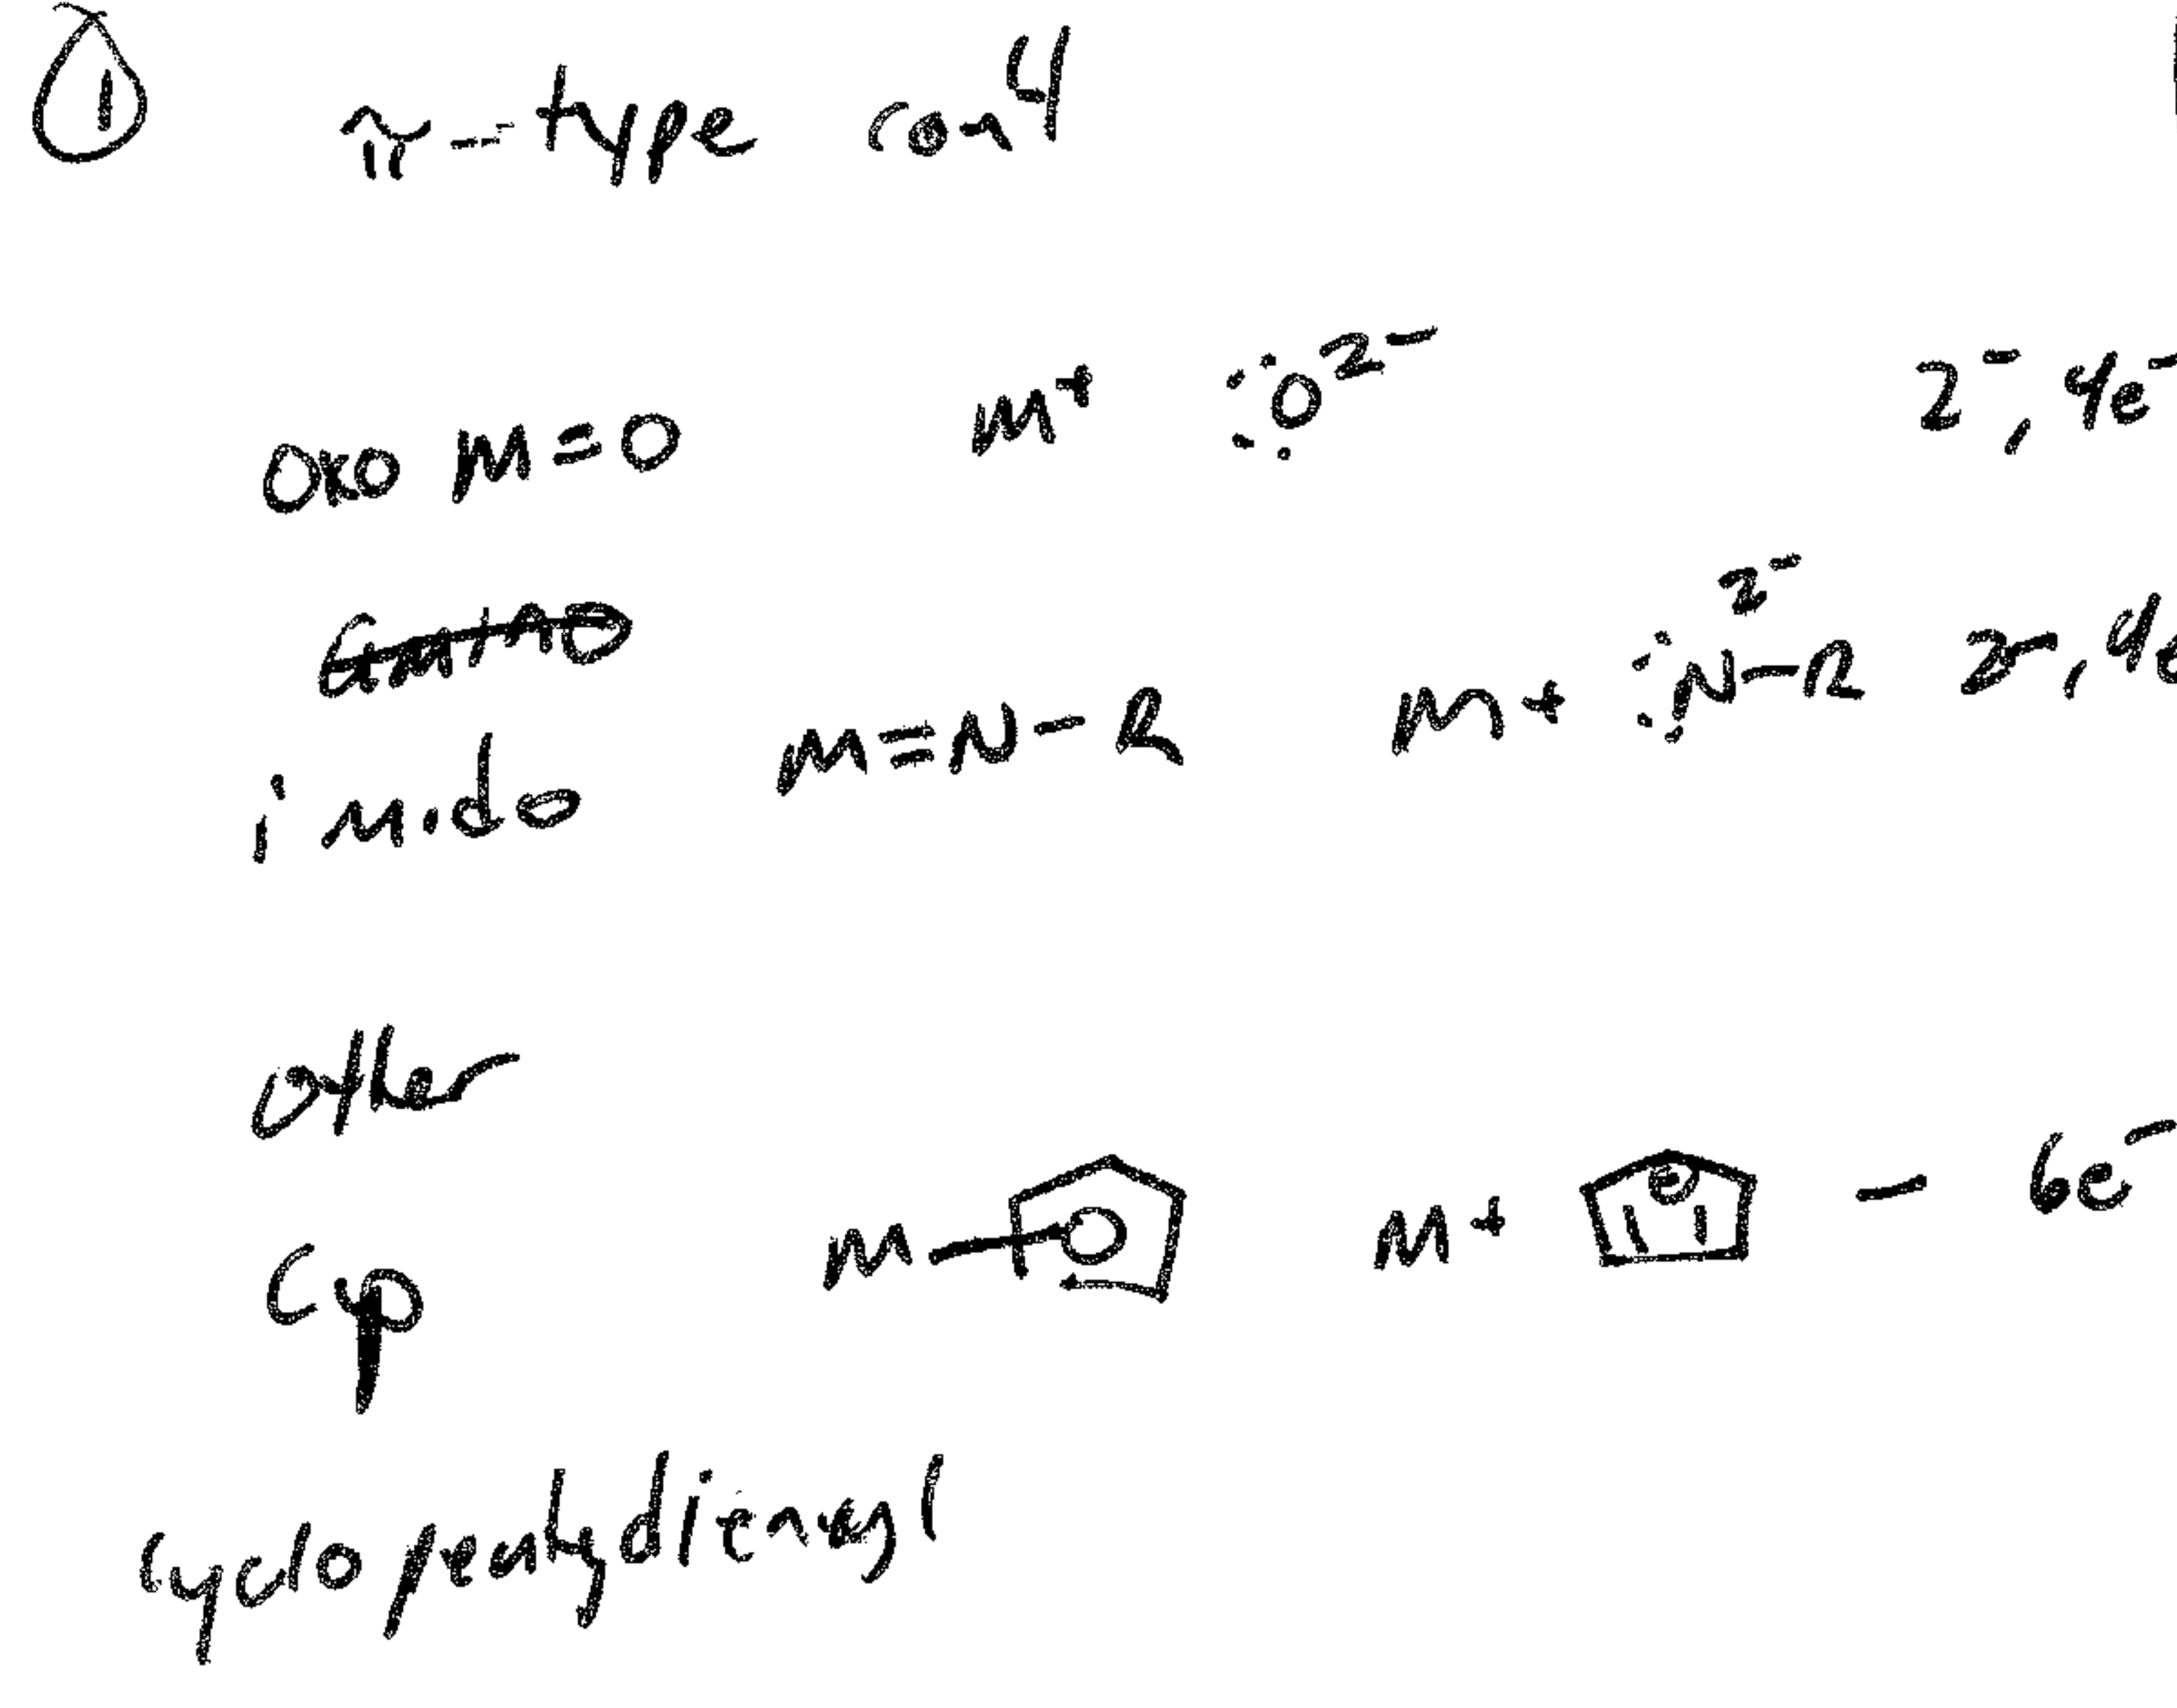 ① π-type con4
oxo M=O M+ :O 2- 2-, 4e-
imido M=N-R M+ :N-R 2- 2-, 4e
other
Cp M- M+ - 6e-
cyclopentydienyl